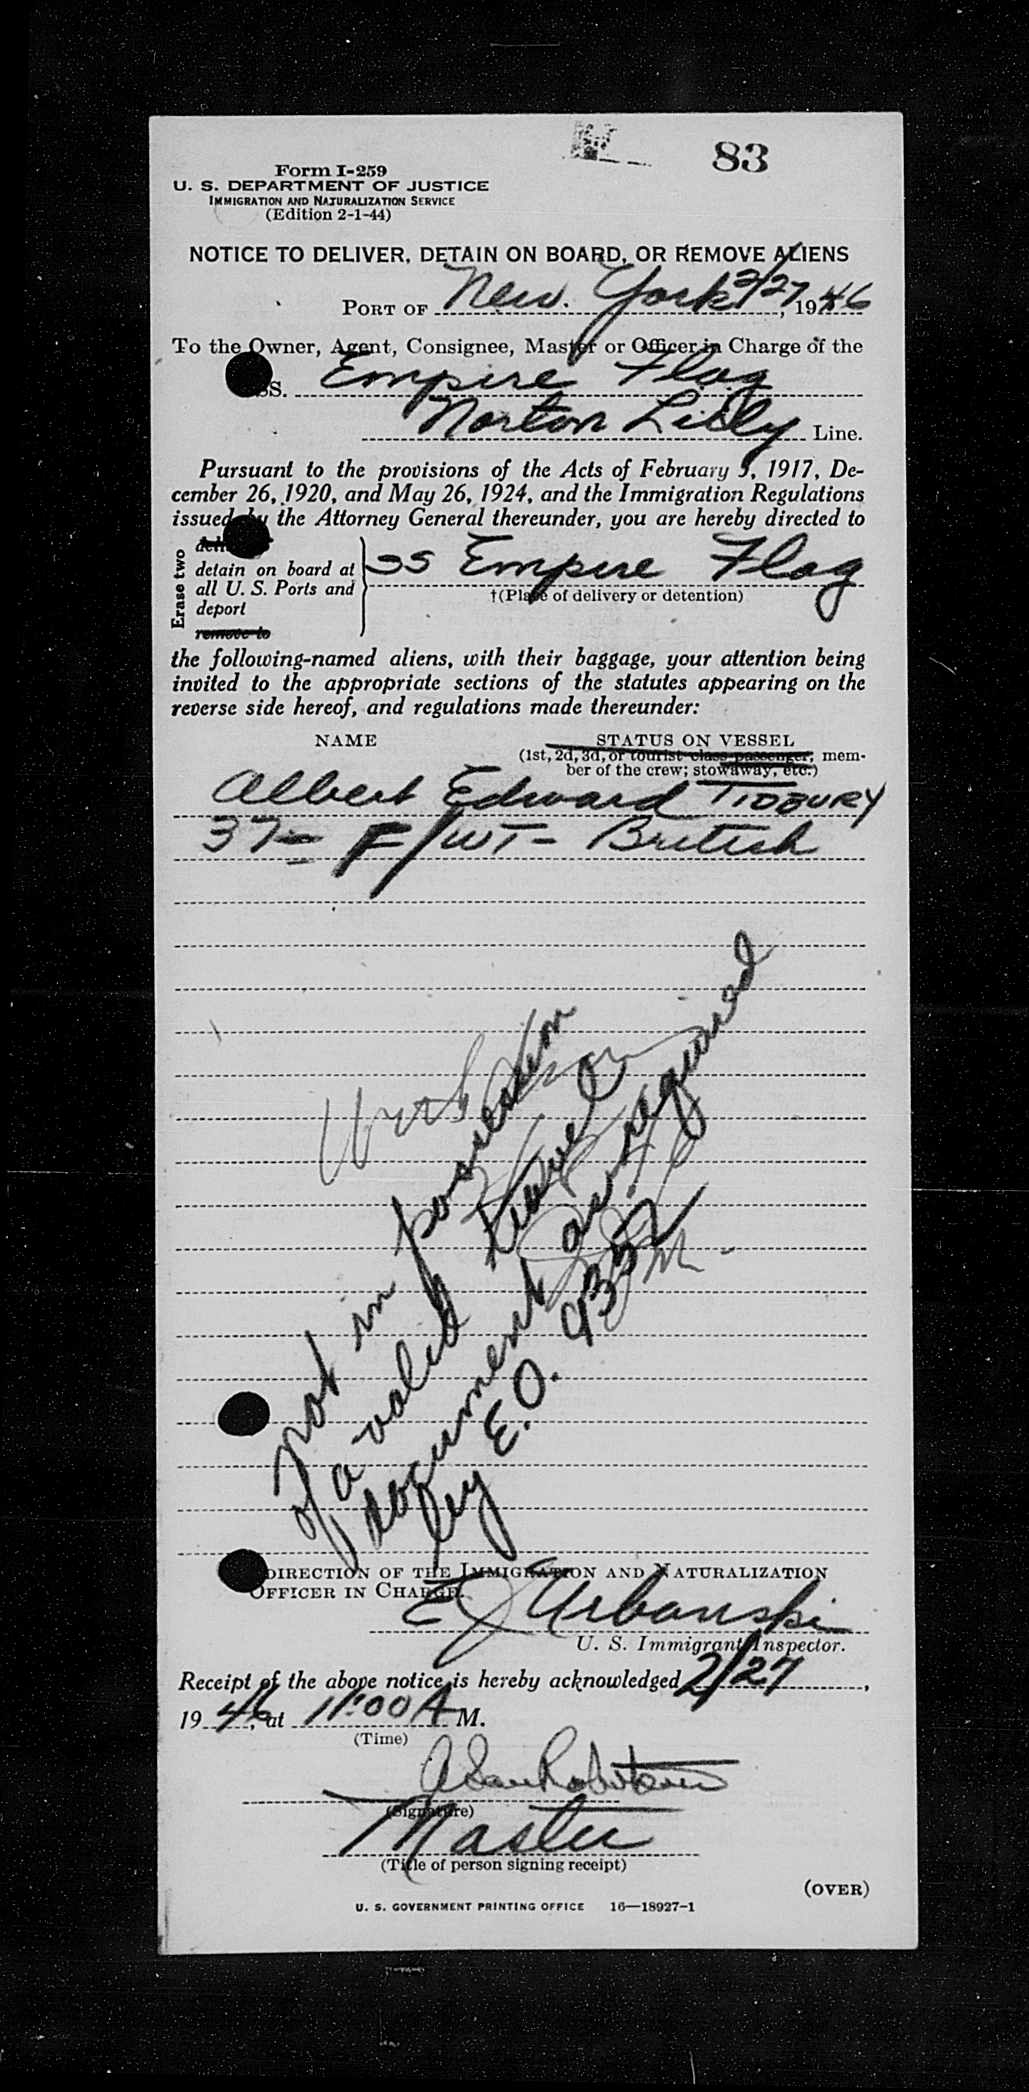 83
Form I-259
U. S. DEPARTMENT OF JUSTICE
IMMIGRATION AND NATURALIZATION SERVICE
(Edition 2-1-44)
NOTICE TO DELIVER, DETAIN ON BOARD, OR REMOVE ALIENS
PORT OF New York 2/27, 1946
To the Owner, Agent, Consignee, Master or Officer in Charge of the
SS. Empire Flag
Norton Lilly Line.
Pursuant to the provisions of the Acts of February 5, 1917, De-
cember 26, 1920, and May 26, 1924, and the Immigration Regulations
issued by the Attorney General thereunder, you are hereby directed to
Erase two
detain on board at
all U. S. Ports and
deport
remove to
SS Empire Flag
†(Place of delivery or detention)
the following-named aliens, with their baggage, your attention being
invited to the appropriate sections of the statutes appearing on the
reverse side hereof, and regulations made thereunder:
NAME STATUS ON VESSEL
(1st, 2d, 3d, or tourist class passenger; mem-
ber of the crew; stowaway, etc.)
Albert Edward TIDBURY
37 - F/WT - British
Not in possession
of a valid travel
document as required
by E.O. 9352
DIRECTION OF THE IMMIGRATION AND NATURALIZATION
OFFICER IN CHARGE.
E J Urbanski
U. S. Immigrant Inspector.
Receipt of the above notice is hereby acknowledged 2/27,
1946, at 11:00 A M.
(Time)
(Signature)
Master
(Title of person signing receipt)
(OVER)
U. S. GOVERNMENT PRINTING OFFICE 16—18927-1